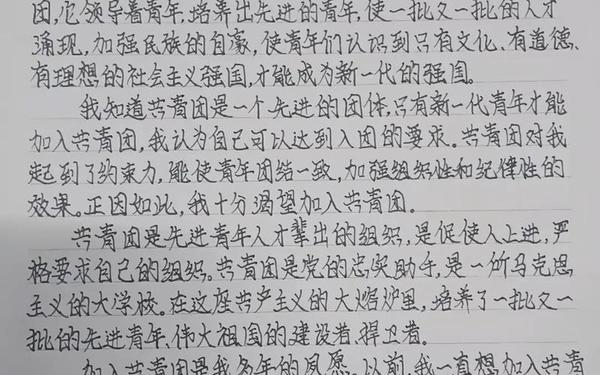 团,它领导着青年,培养出先进的青年,使一批又一批的人才
涌现,加强民族的自豪,使青年们认识到只有文化、有道德、
有理想的社会主义强国,才能成为新一代的强国。
我知道共青团是一个先进的团体,只有新一代青年才能
加入共青团,我认为自己可以达到入团的要求。共青团对我
起到了约束力,能使青年团结一致,加强组织性和纪律性的
效果。正因如此,我十分渴望加入共青团。
共青团是先进青年人才辈出的组织,是促使人上进,严
格要求自己的组织。共青团是党的忠实助手,是一所马克思
主义的大学校。在这座共产主义的大熔炉里,培养了一批又一
批的先进青年、伟大祖国的建设者、捍卫者。
加入共青团是我多年的夙愿。以前,我一直想加入共青